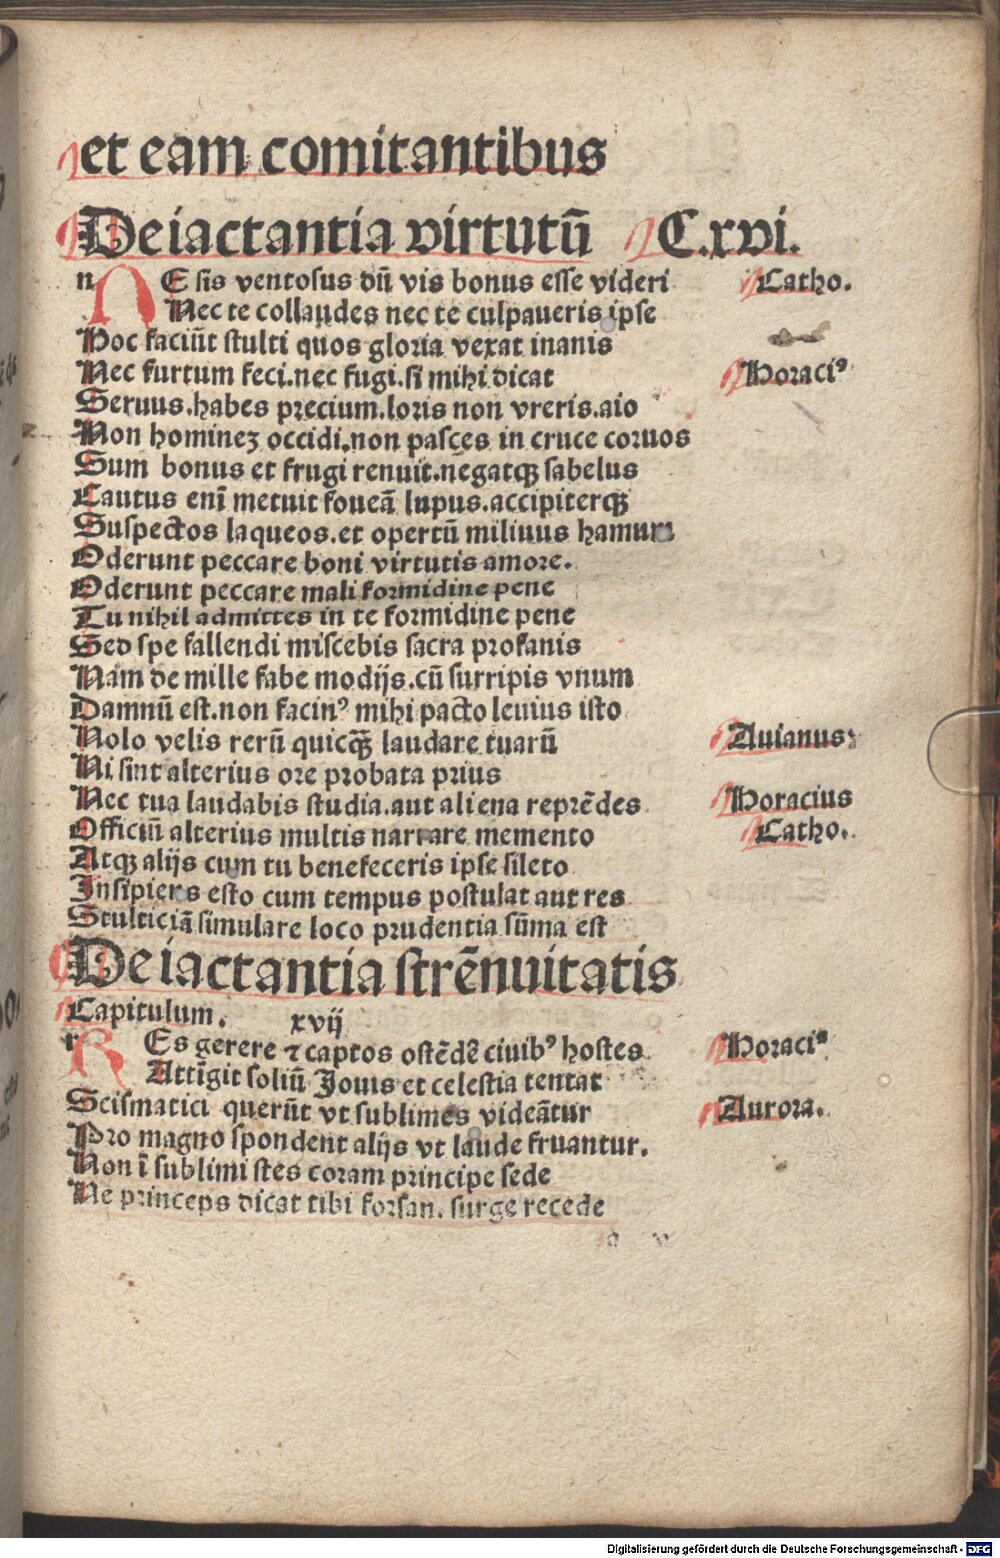 et eam comitantibus
De iactantia virtutū C.xvi.
n NE sis ventosus dū vis bonus esse videri Catho.
Nec te collaudes nec te culpaueris ipse
Hoc faciūt stulti quos gloria vexat inanis
Nec furtum feci.nec fugi.si mihi dicat Horaciꝰ
Seruus.habes precium.loris non vreris.aio
Non homineꝫ occidi.non pasces in cruce coruos
Sum bonus et frugi renuit.negatqꝫ sabelus
Cautus enī metuit foueā lupus.accipiterqꝫ
Suspectos laqueos.et opertū miliuus hamum
Oderunt peccare boni virtutis amore.
Oderunt peccare mali formidine pene
Tu nihil admittes in te formidine pene
Sed spe fallendi miscebis sacra profanis
Nam de mille fabe modijs.cū surripis vnum
Damnū est.non facinꝰ mihi pacto leuius isto
Nolo velis rerū quicqꝫ̄ laudare tuarū Auianus
Ni sint alterius ore probata prius
Nec tua laudabis studia.aut aliena reprēdes Horacius
Officiū alterius multis narrare memento Catho.
Atqꝫ alijs cum tu benefeceris ipse sileto
Insipiens esto cum tempus postulat aut res
Stulticiā simulare loco prudentia sūma est
De iactantia strēnuitatis
Capitulum. xvij
r REs gerere ⁊ captos ostēdē ciuibꝰ hostes Horaciꝰ
Attīgit soliū Jouis et celestia tentat
Scismatici querūt vt sublimes videātur Aurora.
Pro magno spondent alijs vt laude fruantur.
Non ī sublimi stes coram principe sede
Ne princeps dicat tibi forsan. surge recede
a v
Digitalisierung gefördert durch die Deutsche Forschungsgemeinschaft - DFG